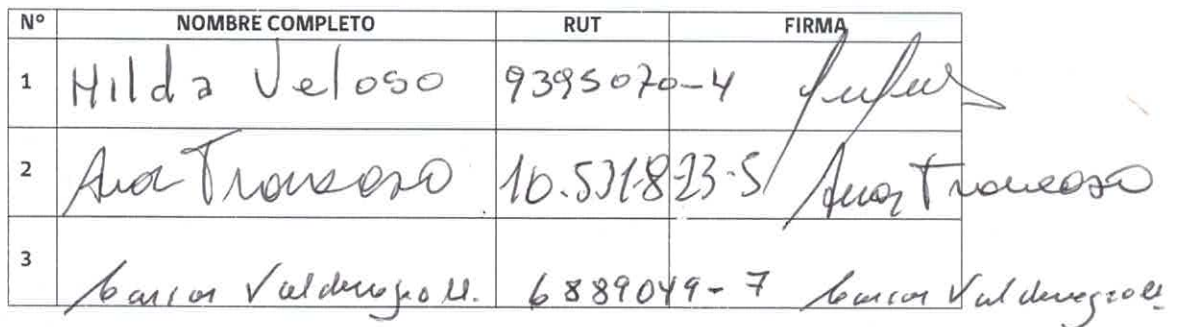 Nº NOMBRE COMPLETO RUT FIRMA
1 Hilda Veloso 9395070-4
2 Ana Troncoso 10.531.823-5 Ana Troncoso
3 Carlos Valdenegro M. 6889049-7 Carlos Valdenegro M.